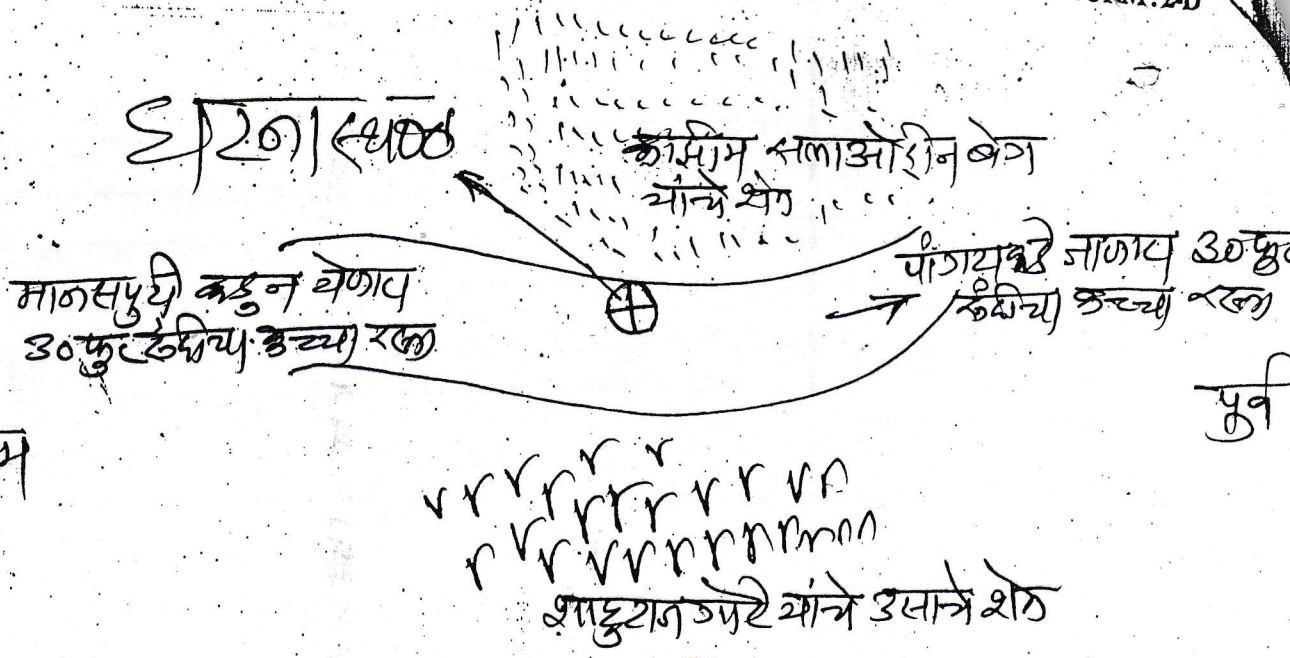 घटनास्थळ
कासीम सलाओद्दीन बेग
यांचे शेत
मानसपुरी कडुन येणारा
30 फुट रुंदीचा कच्चा रस्ता
कडे जाणारा 30 फुट
→ रुंदीचा कच्चा रस्ता
पूर्व
म
यांचे उसाचे शेत